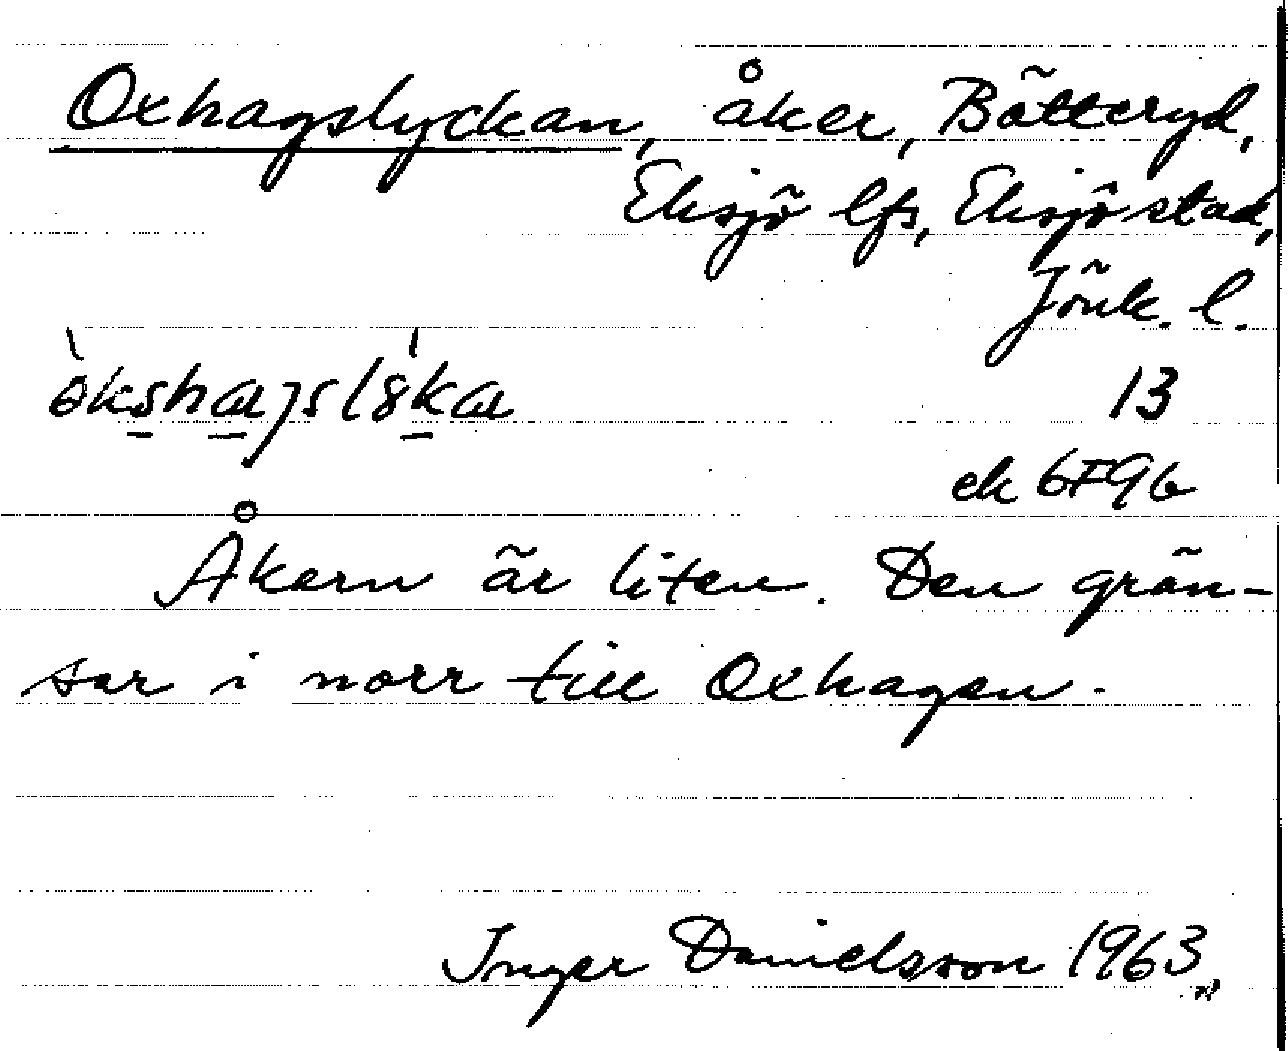 Oxhagslyckan, åker, Bötteryd,
Eksjö lfs, Eksjö stad,
Jönk. l.
13
ek 6F9b
Åkern är liten. Den grän-
sar i norr till Oxhagen.
Inger Danielsson 1963